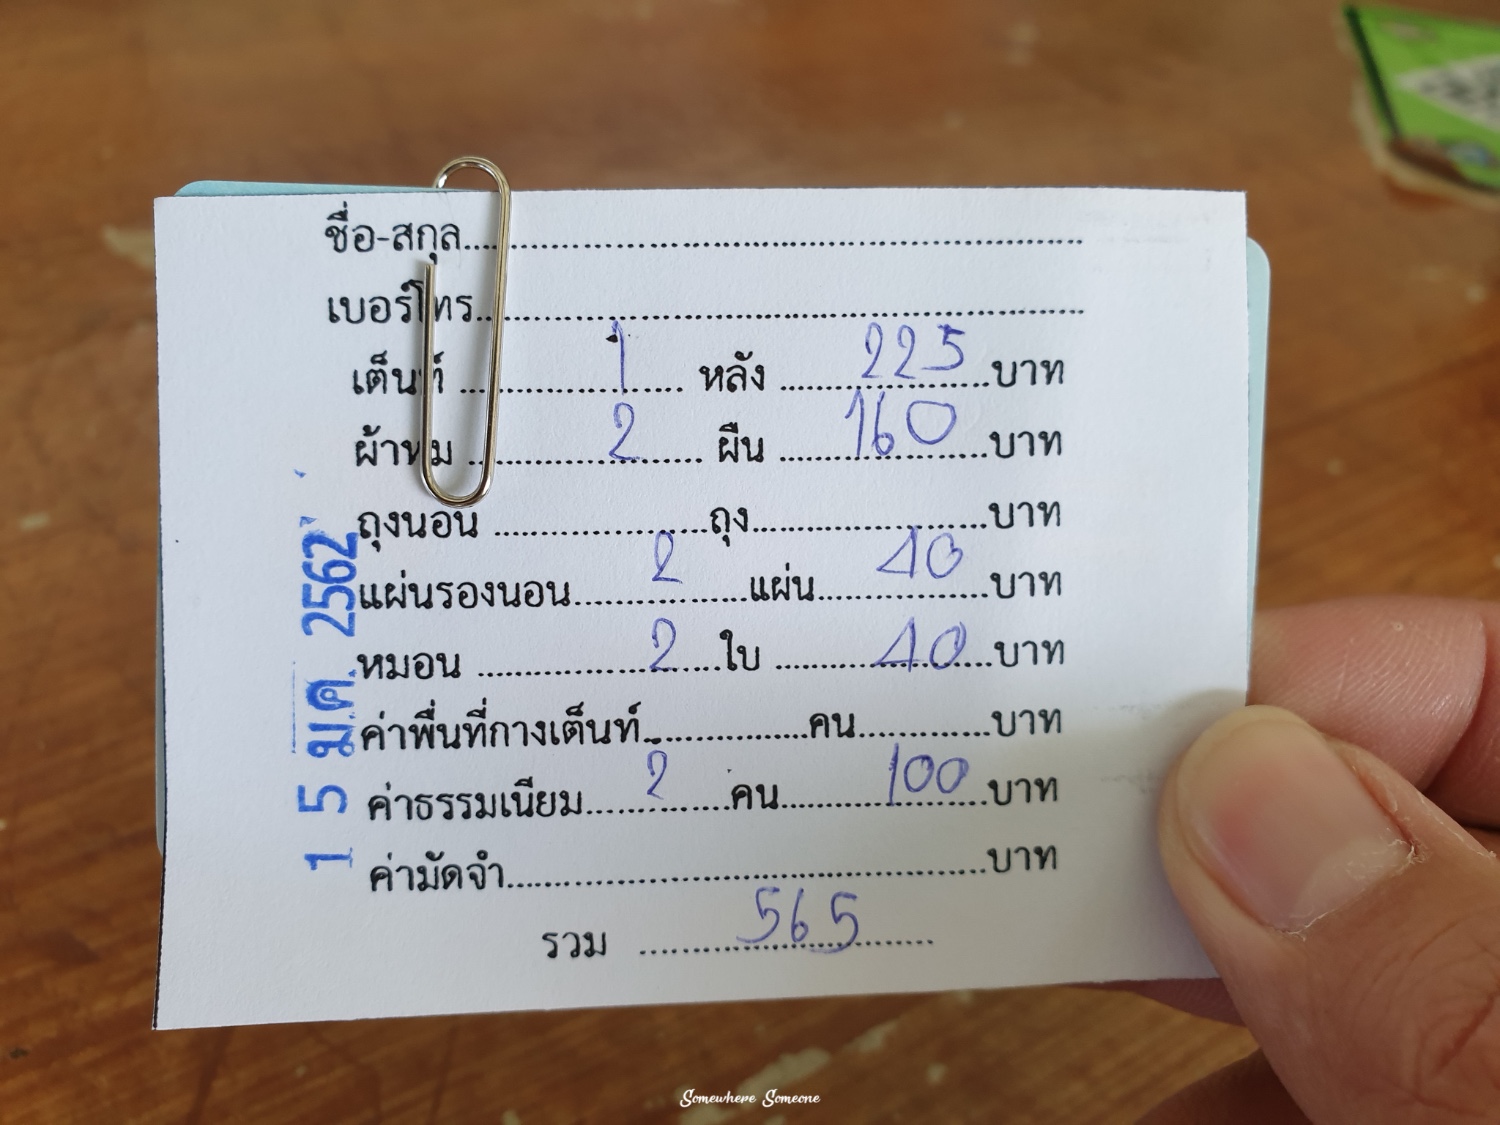 ชื่อ-สกุล..........................................................
เบอร์โทร..........................................................
เต็นท์ ............1............ หลัง ............225............บาท
ผ้าห่ม ............2............ ผืน ............160............บาท
ถุงนอน ........................ถุง........................บาท
แผ่นรองนอน............2............แผ่น............40............บาท
หมอน ............2............ใบ ............40............บาท
ค่าพื้นที่กางเต็นท์..................คน..................บาท
ค่าธรรมเนียม............2............คน............100............บาท
ค่ามัดจำ..........................................................บาท
รวม ............565............
1 5 ม.ค. 2562
Somewhere Someone